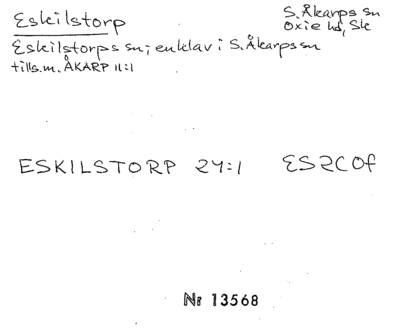 Eskilstorp
S. Åkarps sn
Oxie hd, Sk
Eskilstorps sn; enklav i S. Åkarps sn
tills.m. ÅKARP 11:1
ESKILSTORP 24:1 ES2C0f
Nr 13568